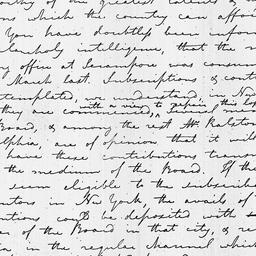 orthy of our greatest talents &
which the country can affor
You have doubtless been infor
elancholy intelligence, that the
g office at Serampore was consum
March last. Subscriptions & cont
templated, we understand, in New
with a view to repair this los
they are commenced, Several
Board, & among the rest Mr Ralston
lphia, are of opinion that it wil
have these contributions trans
the medium of the Board. If the
seem eligible to the subscribe
utors in New York, the avails of
tions could be deposited with
er of the Board in that city, & re
in the regular channel which